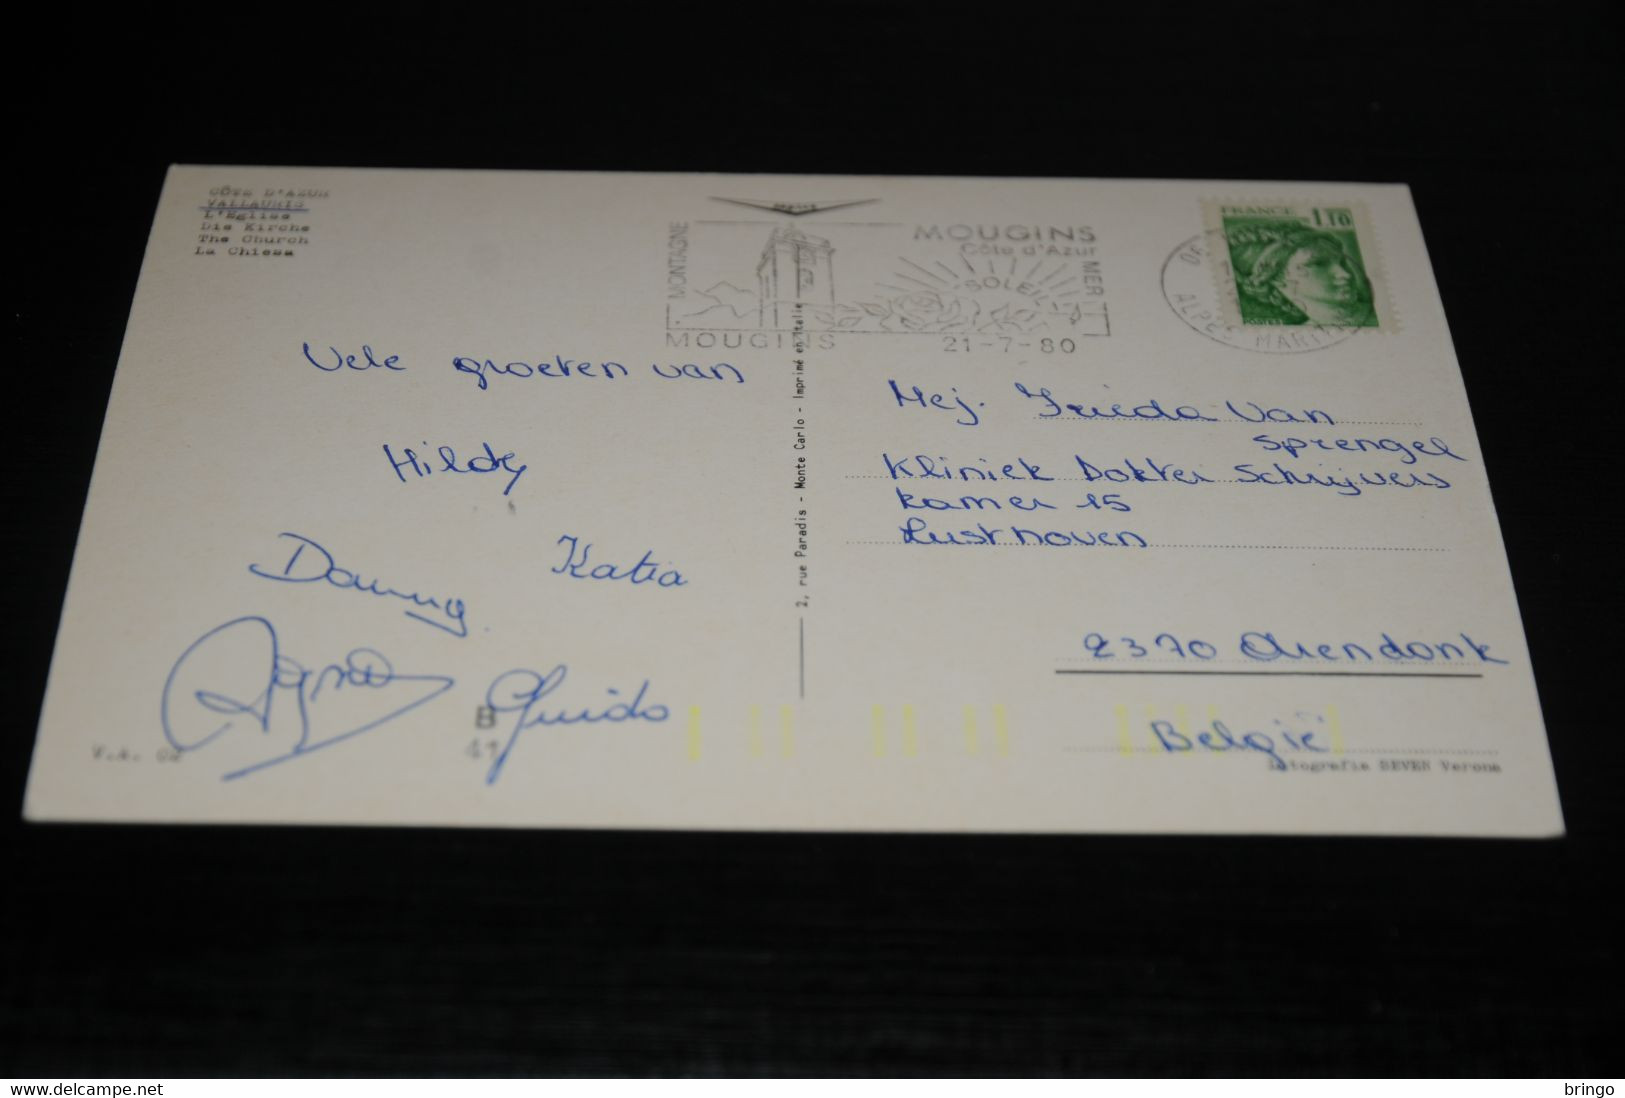 CÔTE D'AZUR
VALLAURIS
L'Eglise
Die Kirche
The Church
La Chiesa
MONTAGNE
MOUGINS
Côte d'Azur
SOLEIL
MER
MOUGINS
21-7-80
FRANCE 1,10
POSTES
ALPES MARIT
Vele groeten van
Hildy
Danny
Katia
Agnes
Guido
Mej. Frieda Van
Sprengel
Kliniek Dokter Schrijvers
Kamer 15
Lusthoven
2370 Arendonk
België
2, rue Paradis - Monte Carlo - Imprimé en Italie
B
41
Fotografia SEVEN Verona
delcampe.net
bringo